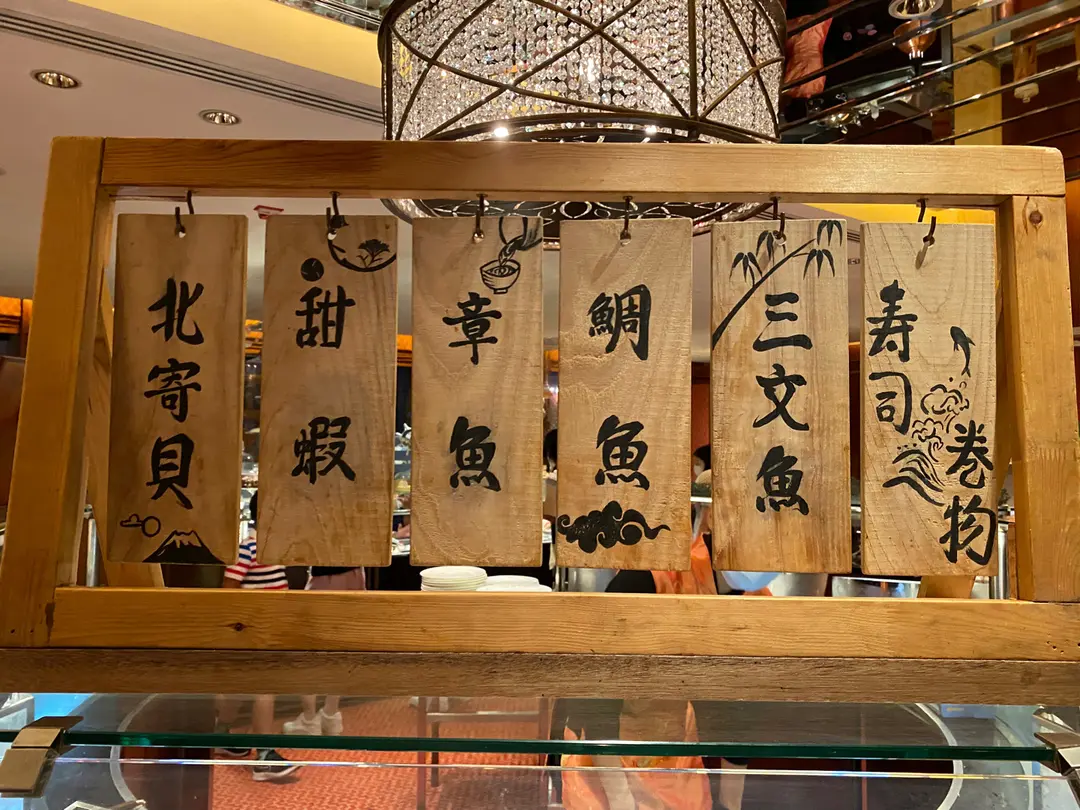 北寄貝
甜蝦
章魚
鯛魚
三文魚
寿司
卷物